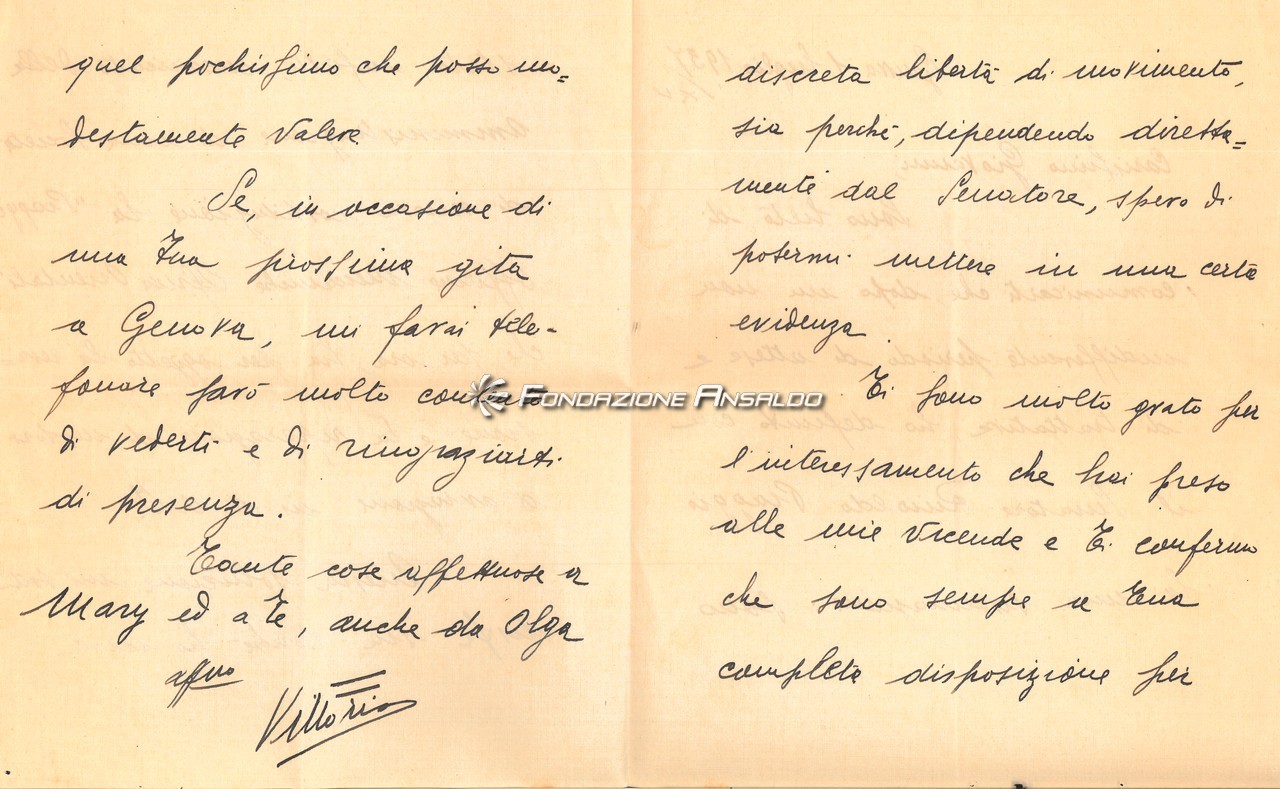 discreta libertà di movimento,
sia perché, dipendendo diretta=
mente dal Senatore, spero di
potermi mettere in una certa
evidenza
Ti sono molto grato per
l'interessamento che hai preso
alle mie vicende e Ti confermo
che sono sempre a Tua
completa disposizione per
quel pochissimo che posso mo=
destamente valere
Se, in occasione di
una Tua prossima gita
a Genova, mi farai tele-
fonare sarò molto contento
di vederti e di ringraziarti
di presenza.
Tante cose affettuose a
Mary ed a Te, anche da Olga
affmo
Vittorio
Fondazione Ansaldo